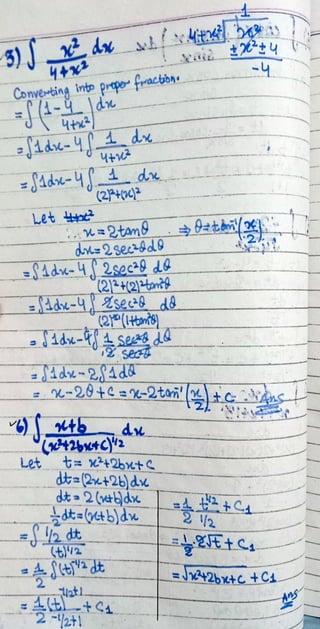 3) ∫ x²/(4+x²) dx
4+x² ) x² ( 1
±x²±4
-4
Converting into proper fraction.
= ∫ (1 - 4/(4+x²)) dx
= ∫1dx - 4∫ 1/(4+x²) dx
= ∫1dx - 4∫ 1/((2)²+(x)²) dx
Let
∴ x = 2tanθ ⇒ θ = tan⁻¹(x/2)
dx = 2sec²θdθ
= ∫1dx - 4∫ 2sec²θ dθ/((2)²+(2)²tan²θ)
= ∫1dx - 4∫ 2sec²θ dθ/((2)²(1+tan²θ))
= ∫1dx - 4∫ 1/2 sec²θ/sec²θ dθ
= ∫1dx - 2∫1dθ
= x - 2θ + c = x - 2tan⁻¹(x/2) + c Ans
6) ∫ (x+b)/(x²+2bx+c)^1/2 dx
Let t = x²+2bx+c
dt = (2x+2b)dx
dt = 2(x+b)dx
1/2 dt = (x+b)dx
= ∫ 1/2 dt/(t)^1/2
= 1/2 ∫(t)^-1/2 dt
= 1/2 (t)^-1/2+1/(-1/2+1) + C₁
= 1/2 t^1/2/(1/2) + C₁
= 1/2 · 2√t + C₁
= √x²+2bx+c + C₁
Ans